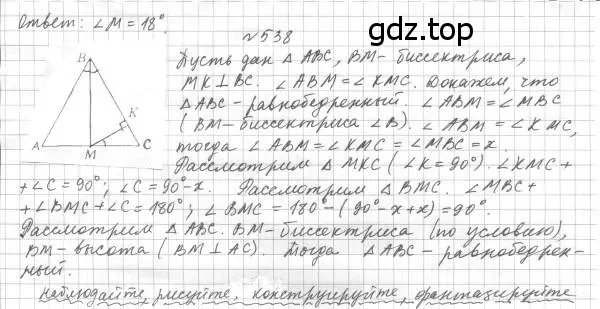 Ответ: ∠M = 18°.
gdz.top
N 538
Пусть дан △ ABC, BM - биссектриса,
MK ⊥ BC. ∠ ABM = ∠ KMC. Докажем, что
△ABC - равнобедренный. ∠ ABM = ∠ MBC
(BM - биссектриса ∠B). ∠ ABM = ∠ KMC,
тогда ∠ ABM = ∠ KMC = ∠ MBC = x.
Рассмотрим △ MKC (∠K = 90°). ∠KMC +
+ ∠C = 90°; ∠C = 90° - x. Рассмотрим △ BMC. ∠MBC +
+ ∠BMC + ∠C = 180°; ∠ BMC = 180° - (90° - x + x) = 90°.
Рассмотрим △ABC. BM - биссектриса (по условию),
BM - высота (BM ⊥ AC). Тогда △ABC - равнобедрен-
ный.
наблюдайте, рисуйте, конструируйте, фантазируйте
B
K
A
M
C